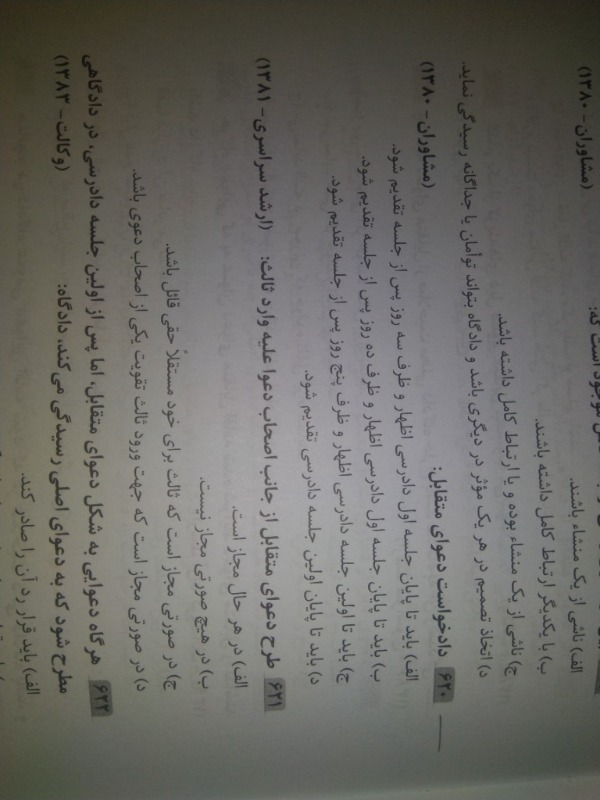 موجود است که:
(مشاوران - ۱۳۸۰)
الف) ناشی از یک منشاء باشند.
ب) با یکدیگر ارتباط کامل داشته باشند.
ج) ناشی از یک منشاء بوده و یا ارتباط کامل داشته باشد.
د) اتخاذ تصمیم در هر یک مؤثر در دیگری باشد و دادگاه بتواند توأمان یا جداگانه رسیدگی نماید.
۶۲۰ دادخواست دعوای متقابل: (مشاوران - ۱۳۸۰)
الف) باید تا پایان جلسه اول دادرسی اظهار و ظرف سه روز پس از جلسه تقدیم شود.
ب) باید تا پایان جلسه اول دادرسی اظهار و ظرف ده روز پس از جلسه تقدیم شود.
ج) باید تا اولین جلسه دادرسی اظهار و ظرف پنج روز پس از جلسه تقدیم شود.
د) باید تا پایان اولین جلسه دادرسی تقدیم شود.
۶۲۱ طرح دعوای متقابل از جانب اصحاب دعوا علیه وارد ثالث: (ارشد سراسری - ۱۳۸۱)
الف) در هر حال مجاز است.
ب) در هیچ صورتی مجاز نیست.
ج) در صورتی مجاز است که ثالث برای خود مستقلاً حقی قائل باشد.
د) در صورتی مجاز است که جهت ورود ثالث تقویت یکی از اصحاب دعوی باشد.
۶۲۲ هر گاه دعوایی به شکل دعوای متقابل، اما پس از اولین جلسه دادرسی، در دادگاهی
مطرح شود که به دعوای اصلی رسیدگی می‌کند، دادگاه: (وکالت - ۱۳۸۳)
الف) باید قرار رد آن را صادر کند.